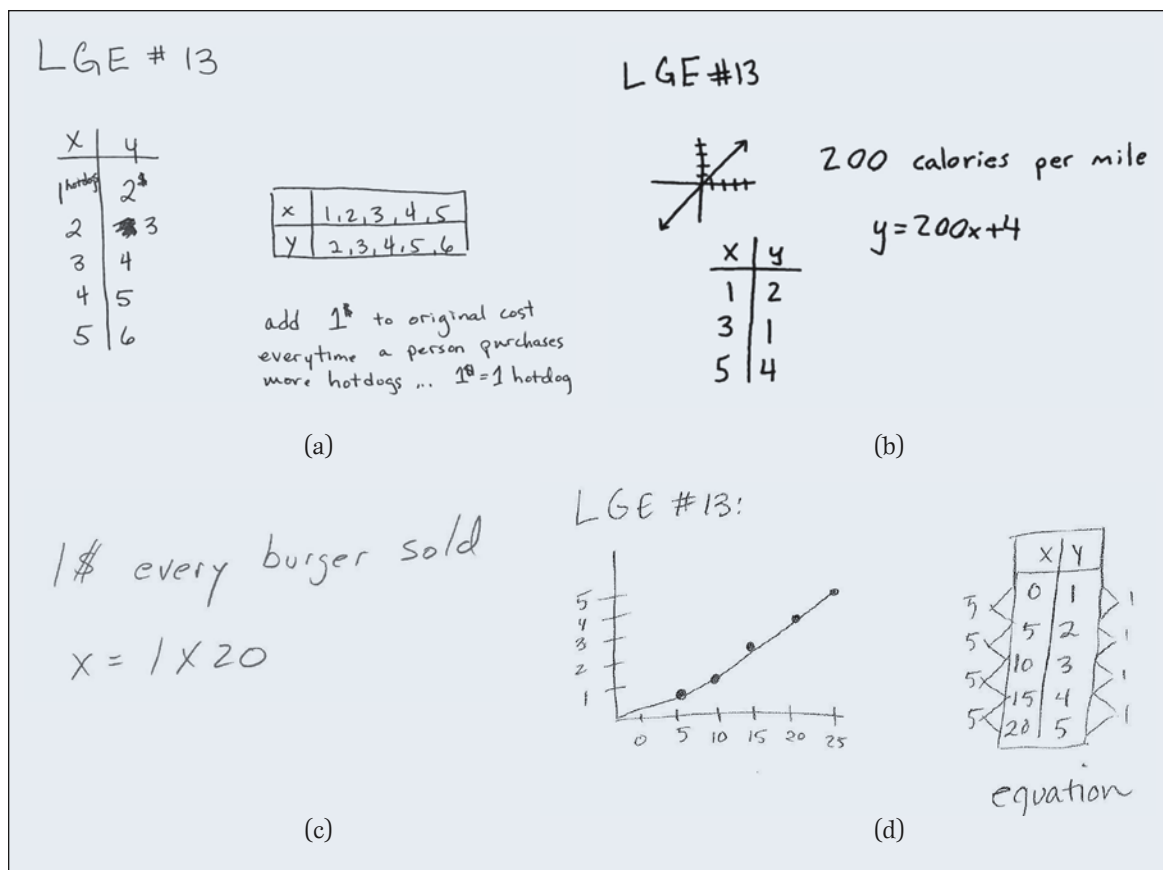 LGE # 13
x y
1 hotdog 2$
2 3
3 4
4 5
5 6
x 1, 2, 3, 4, 5
y 2, 3, 4, 5, 6
add 1$ to original cost
everytime a person purchases
more hotdogs ... 1$ = 1 hotdog
(a)
LGE #13
200 calories per mile
y = 200x+4
x y
1 2
3 1
5 4
(b)
1$ every burger sold
x = 1 X 20
(c)
LGE #13:
5
4
3
2
1
0 5 10 15 20 25
x y
0 1
5 2
10 3
15 4
20 5
5 1
5 1
5 1
5 1
equation
(d)